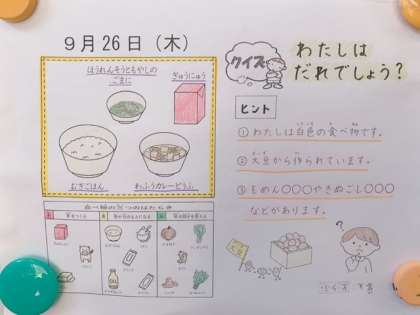 9月26日（木）
ほうれんそうともやしの
ごまに
ぎゅうにゅう
むぎごはん
わふうカレーどうふ
食べ物の三つのはたらき
クイズ
わたしは
だれでしょう？
ヒント
① わたしは白色の食べ物です。
② 大豆から作られています。
③ もめん〇〇〇やきぬごし〇〇〇
などがあります。